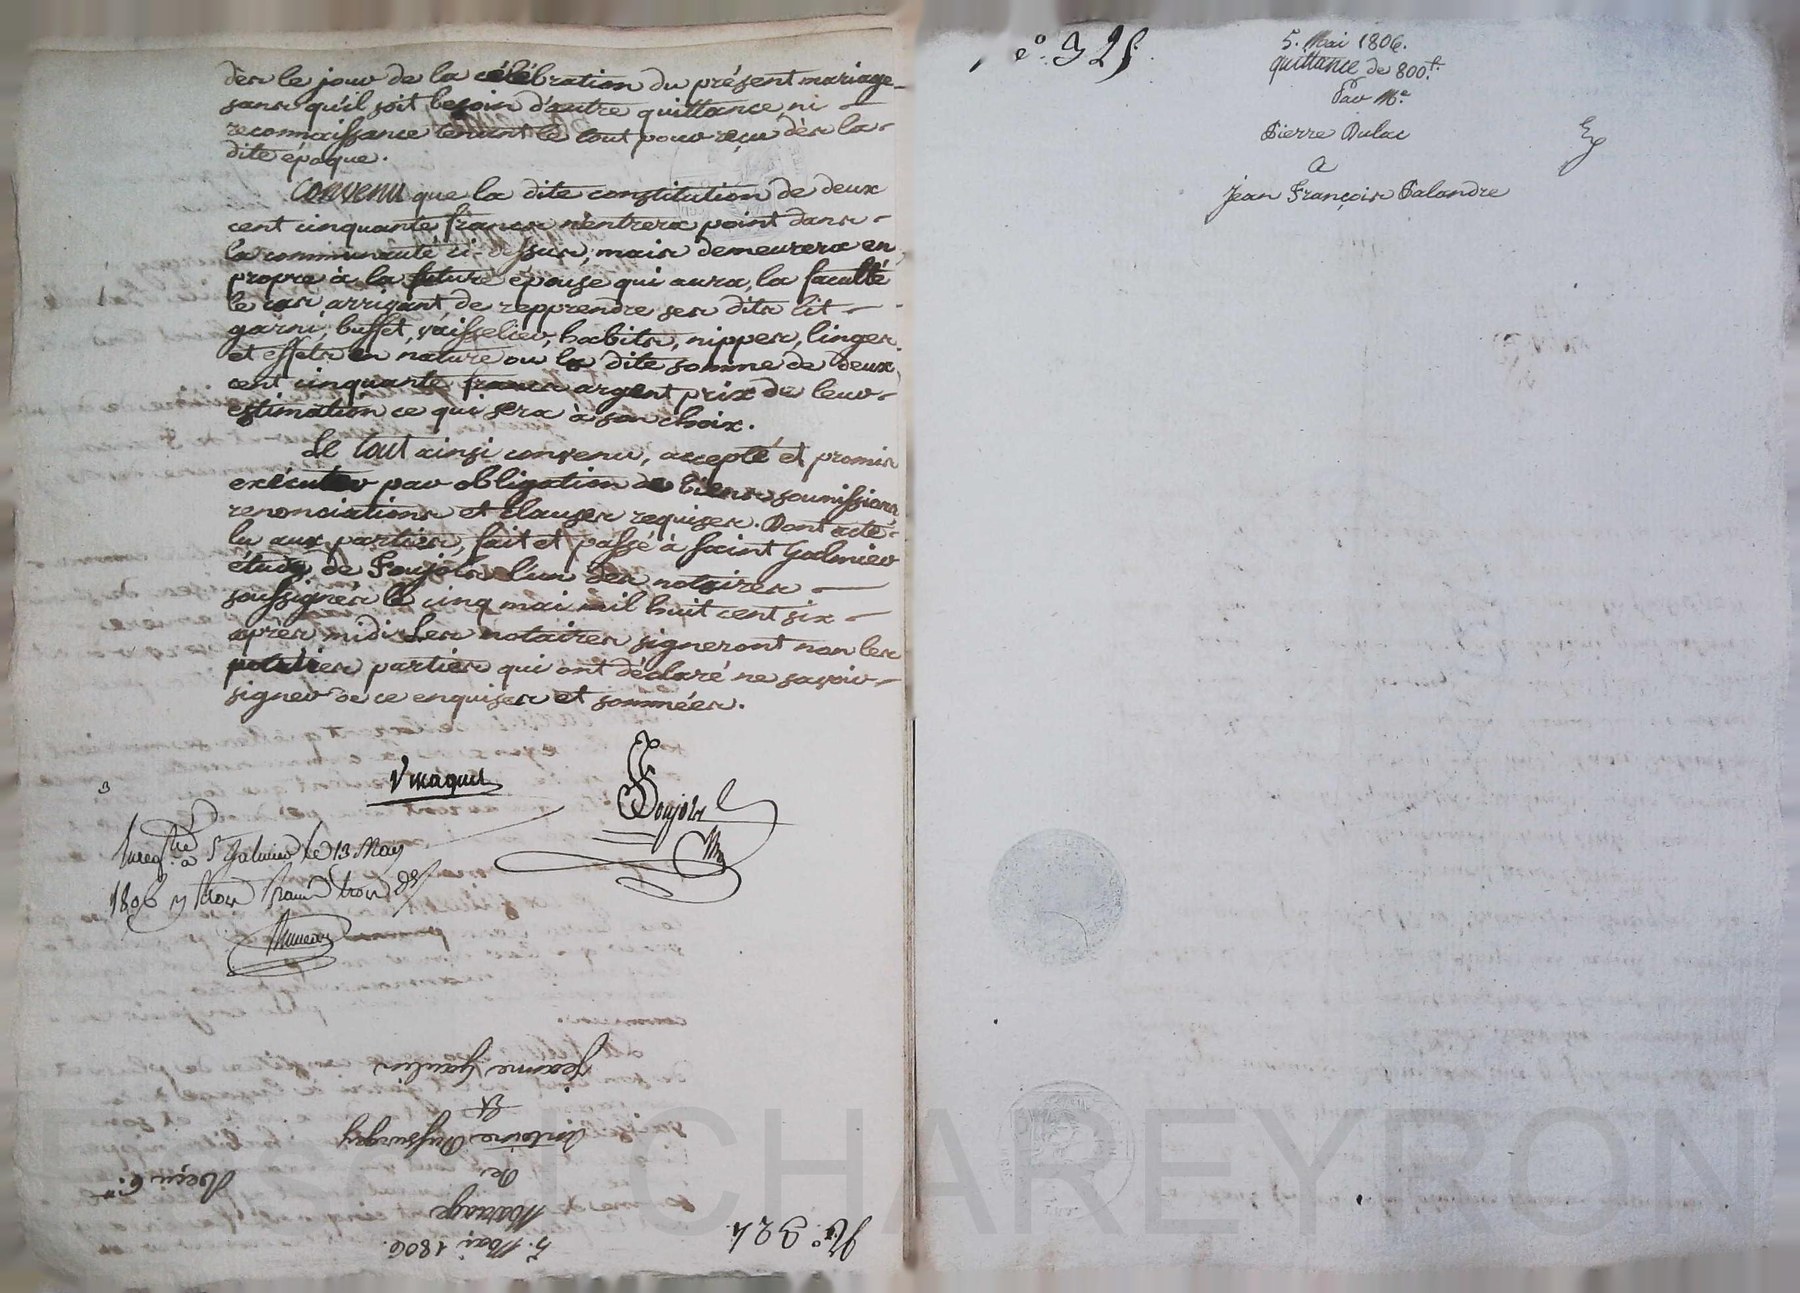 dès le jour de la célébration du présent mariage
sans qu'il soit besoin d'autre quittance, ni
reconnaissance tenant le tout pour reçu dès la
dite époque.
Convenu que la dite constitution de deux
cent cinquante francs n'entrera point dans
la communauté ci-dessus, mais demeurera en
propre à la future épouse qui aura, la faculté
le cas arrivant, de repprendre ses dits lit
garni, buffet, vaisselier, habits, nippes, linges
et effets en nature ou la dite somme de deux
cent cinquante francs argent prix de leur
estimation ce qui sera à son choix.
Le tout ainsi convenu, accepté et promis
exécuter par obligation de biens soumissions
renonciations et clauses requises. Dont acte
lu aux parties, fait et passé à Saint Galmier
étude de Soujols l'un des notaires
soussignés le cinq mai mil huit cent six
après midi. Les notaires signeront non les
parties qui ont déclaré ne savoir
signer de ce enquises et sommées.
Soujols
Enregtré à St Galmier le 13 May
1806 trois francs trois
Jeanne Gaulin
&
Antoine
De
Mariage
5. Mai 1806.
No. 324
No. 325.
5. Mai 1806.
quittance de 800.f.
Par Me.
Pierre Dulac
a
Jean François Palandre
Ex
Tessa CHAREYRON